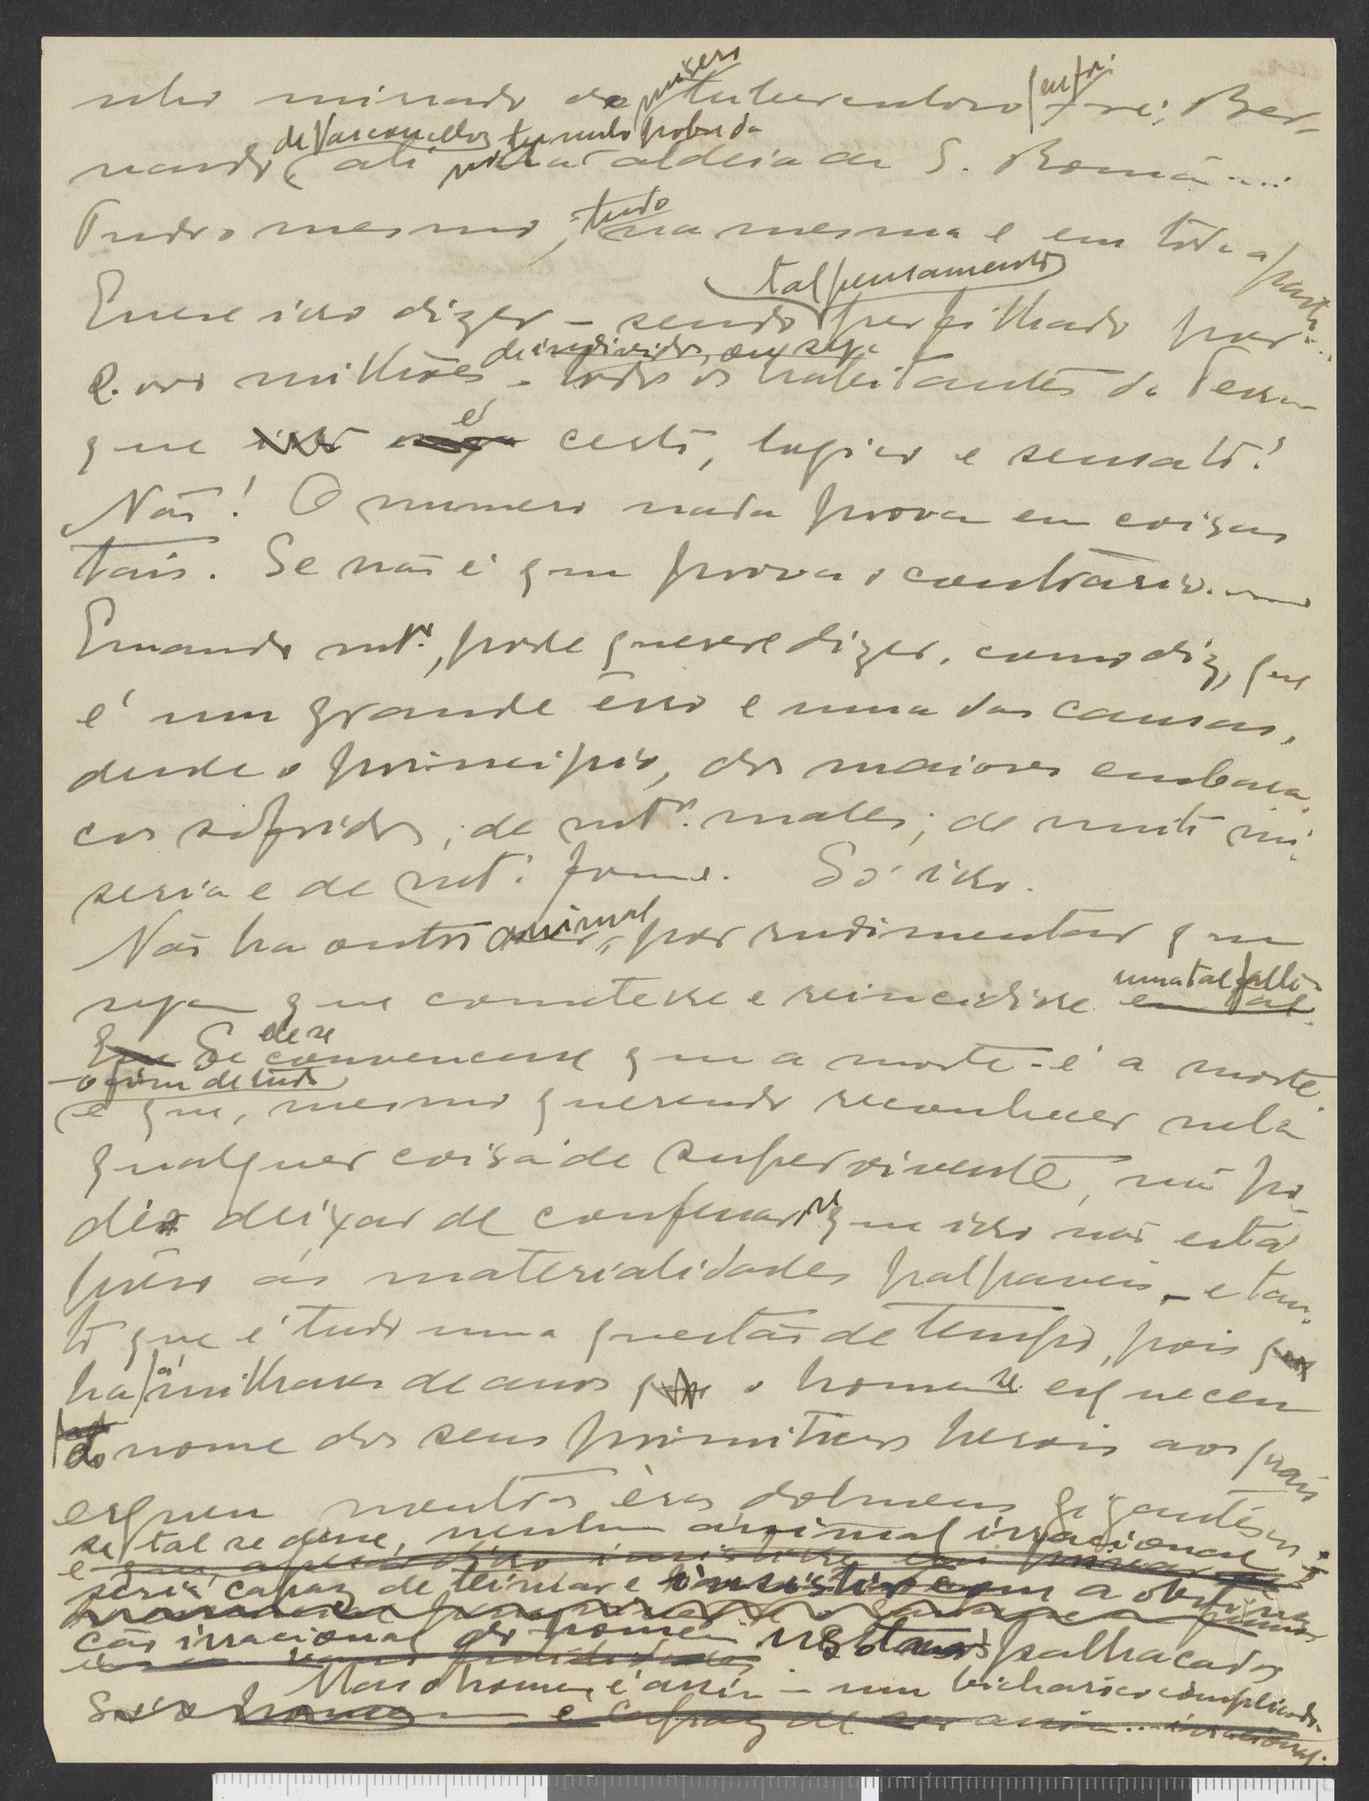 nho minado do misero tuberculoso que foi Ber-
nardo de Vasconcellos, ali tumulo pobre da aldeia de S. Romã....
Tudo o mesmo, tudo na mesma e em toda a parte...
Quere isso dizer – sendo tal pensamento perfilhado por
2.000 milhões de individuos, ou seja todos os habitantes da Terra
que é certo, logico e sensato?
Não! O numero nada prova em coisas
tais. Se não é que prova o contrário.
Quando mt.º, pode querer dizer, como diz, que
é um grande êrro e uma das causas,
desde o principio, dos maiores embara-
ços sofridos, de mt.ºs males, de muita mi-
seria e de mt.ª fome. Só isso.
Não ha outro animal, por rudimentar que
seja que cometesse e reincidisse uma tal
Se ele se convencesse que a morte é a morte
– o fim de tudo
e que, mesmo querendo reconhecer nela
qualquer coisa de supervivente, não po-
dia deixar de confessar que isso não está
prêso ás materialidades palpaveis – e tan-
to que é tudo uma questão de tempo, pois
ha já milhares de anos o homem se esqueceu
do nome dos seus primitivos herois aos quais
ergueu noutras éras dolmens gigantescos
se tal se désse, nenhum animal irracional
seria capaz de teimar e insistir com a obstina-
ção irracional do homem nestas palhaçadas
Mas o homem é assim – um bicharôco complicado.